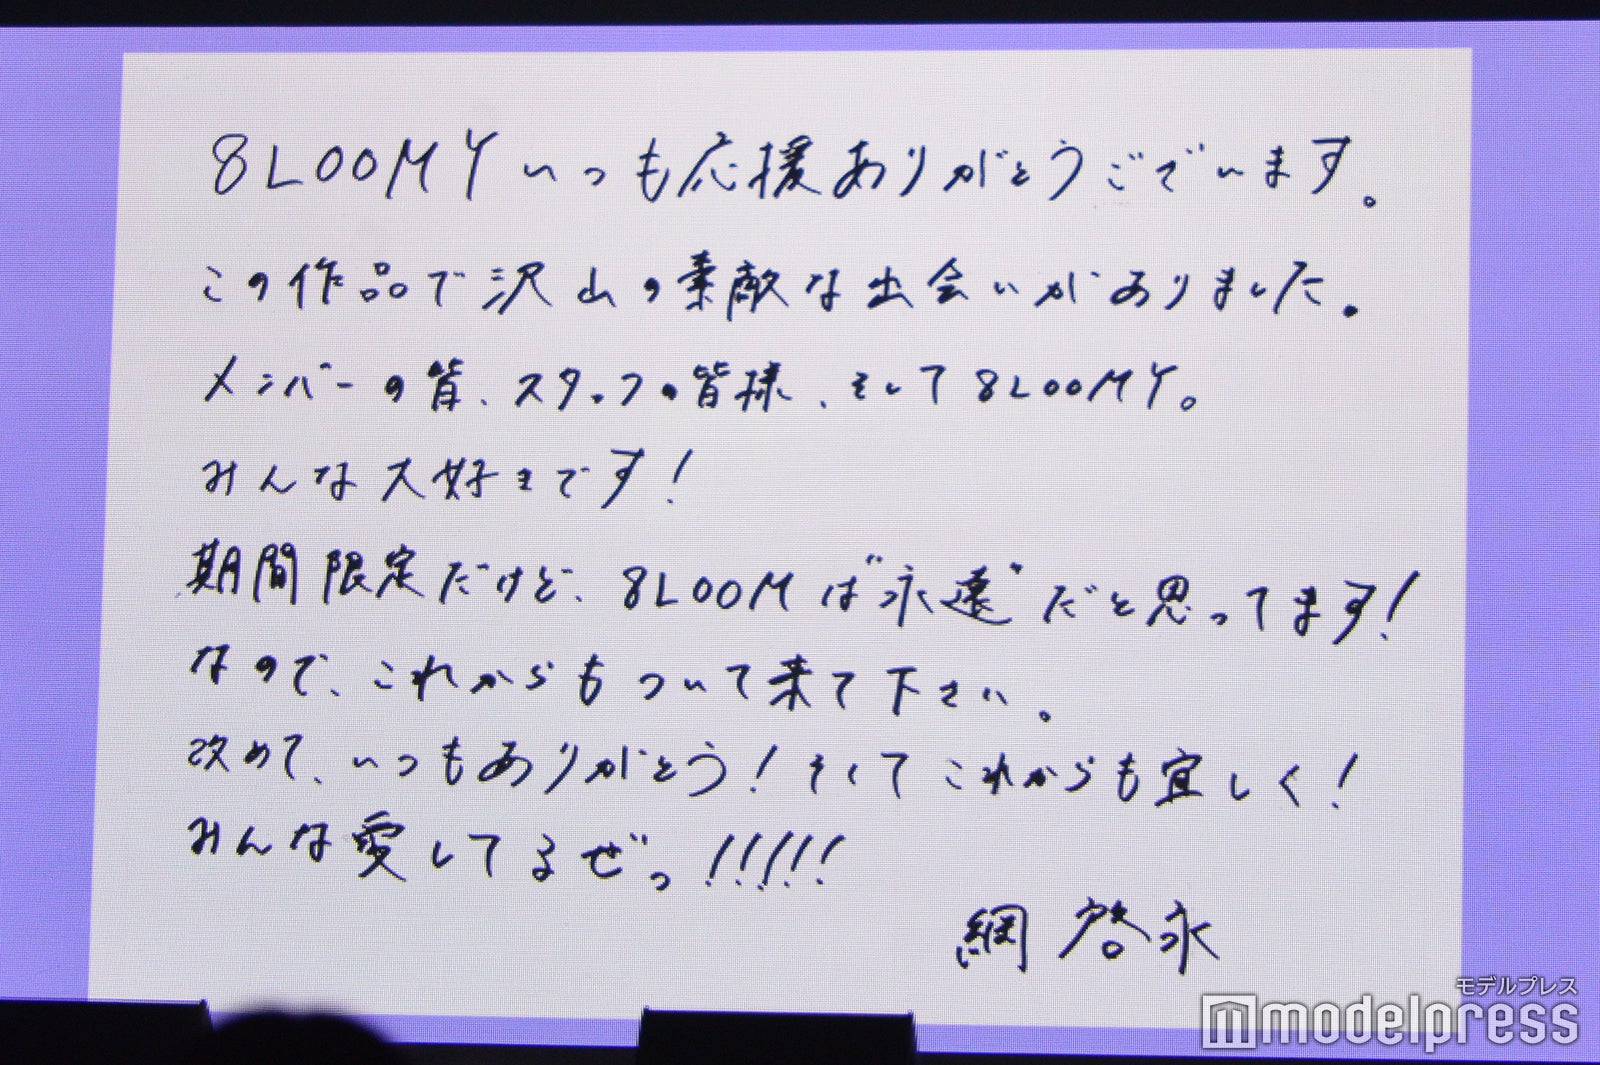 8LOOMYいつも応援ありがとうございます。
この作品で沢山の素敵な出会いがありました。
メンバーの皆、スタッフの皆様、そして8LOOMY。
みんな大好きです!
期間限定だけど、8LOOMは"永遠"だと思ってます!
なので、これからもついて来て下さい。
改めて、いつもありがとう!そしてこれからも宜しく!
みんな愛してるぜっ!!!!!
綱啓永
モデルプレス
modelpress